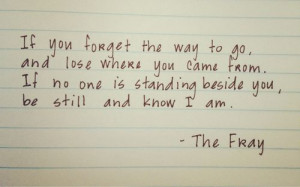 If you forget the way to go,
and lose where you came from.
If no one is standing beside you,
be still and know I am.
- The Fray